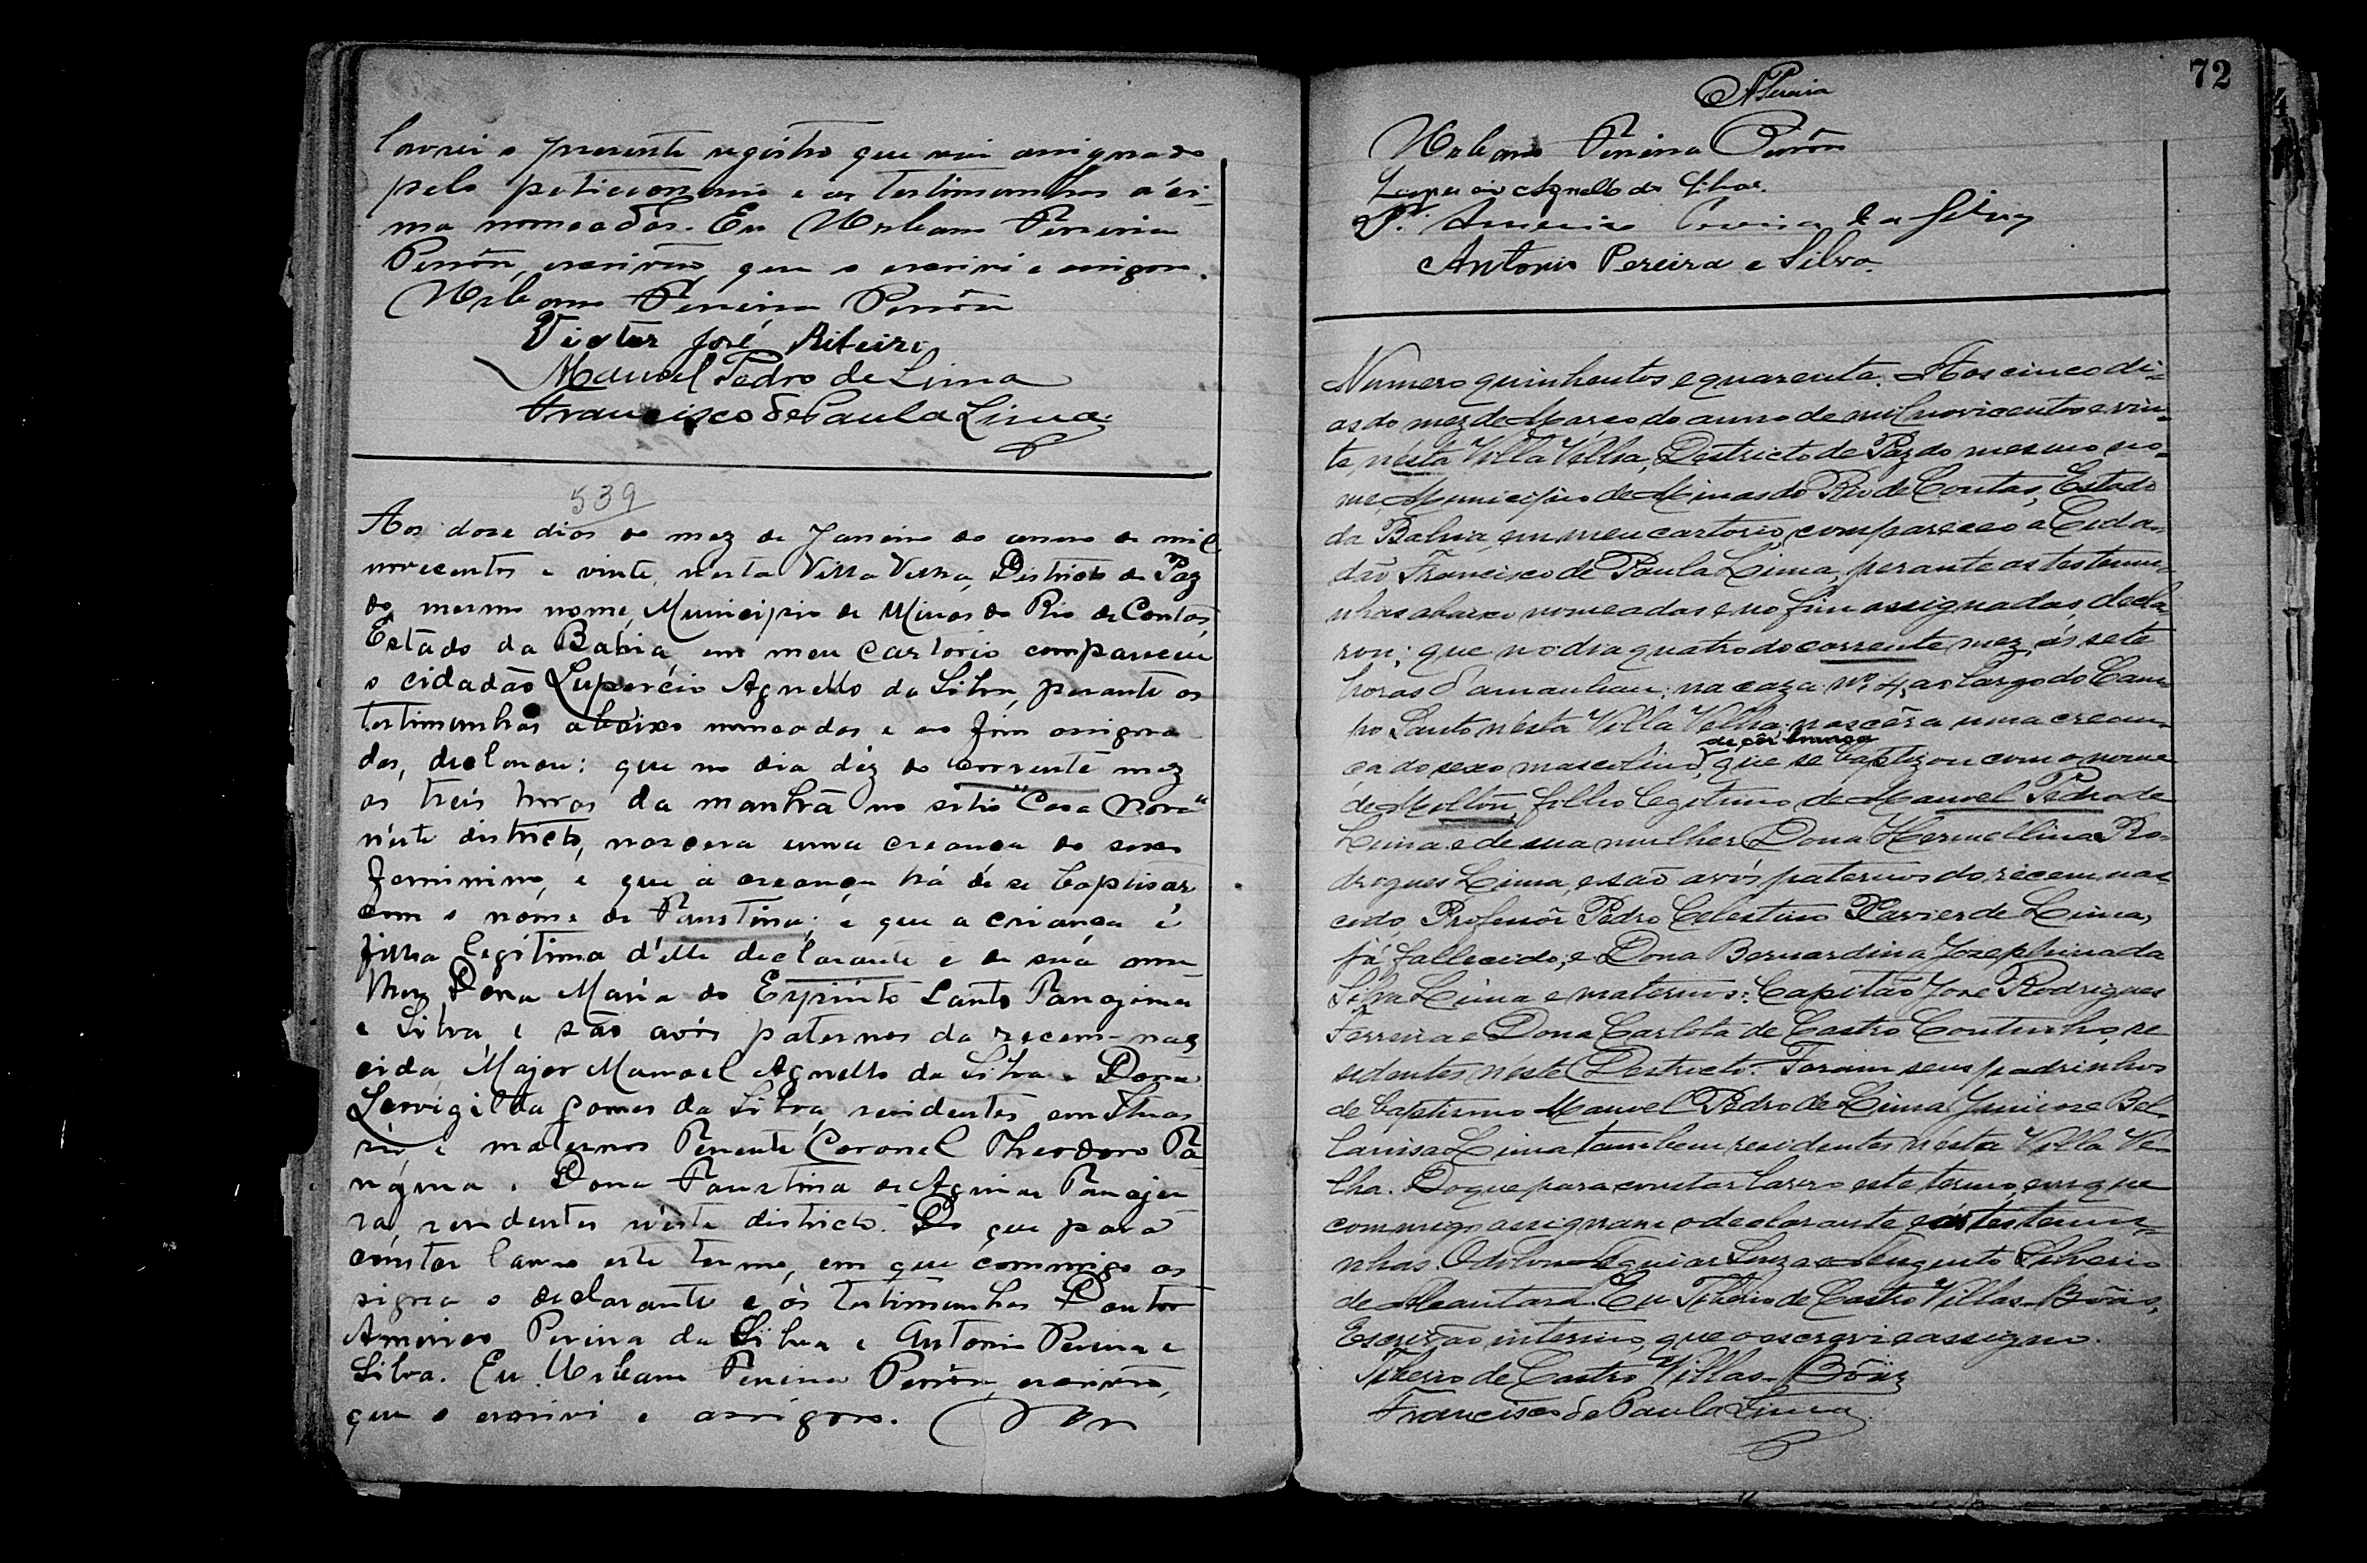 lavrei o presente registro que vai assignado
pelo peticionario e as testimunhas aci-
ma nomeados. Eu Urbano Pereira
Pirôn, escrivão, que o escrivi e assigno.
Urbano Pereira Pirôn
Victor José Ribeiro
Manoel Pedro de Lima
Francisco de Paula Lima
539
Aos dose dias do mez de Janeiro do anno de mil
novecentos e vinte, nesta Villa Velha, Districto de Paz
do mesmo nome, Municipio de Minas do Rio de Contas,
Estado da Bahia, em meu Cartorio compareceu
o cidadão Lupercio Agnello da Silva, perante as
testimunhas abaixo nomeadas e no fim assigna
das, declarou: que no dia déz do corrente mez
as treis horas da manhã no sitio "Casa Nova"
néste districto, nascera uma creança do sexo
feminino, e que a creança há de se baptisar
com o nome de Faustina; e que a criança é
filha legítima d'elle declarante e de sua mu-
lher Dona Maria do Espirito Santo Tanajura
e Silva, e são avós paternos da recem-nas
cida, Major Manoel Agnello da Silva e Dona
Leovigilda Gomes da Silva, residentes em Ituas
sú e maternos Tenente Coronel Theodoro Ta-
najura e Dona Faustina de Aguiar Tanaju
ra, residentes néste districto. Do que para
constar lavro este termo, em que commigo as
signa o declarante e ás testimunhas Doutor
Americo Pereira da Silva e Antonio Pereira e
Silva. Eu Urbano Pereira Pirôn, escrivão,
que o escrivi e assigno.
72
APereira
Urbano Pereira Pirôn
Lupercio Agnello da Silva.
Dr. Americo Pereira da Silva
Antonio Pereira e Silva.
Numero quinhentos e quarenta. Aos cinco di-
as do mez de Março do anno de mil novicentos e vin-
te, nésta Villa Vélha, Destricto de Paz do mesmo no-
me, Municipio de Minas do Rio de Contas, Estado
da Bahia, em meu cartorio, compareceo o Cida-
dão Francisco de Paula Lima, perante as testemu-
nhas abaixo nomeadas e no fim assignadas, decla-
rou; que no dia quatro do corrente mez, ás sete
horas d'amanhan; na caza nº 4, ao largo do Cam-
po Santo nésta Villa Velha; nascêra uma crean-
ça do sexo masculino, de côr branca que se baptizou com o nome
de Milton, filho legitimo de Manoel Pedro de
Lima e de sua mulher Dona Hermellina Ro-
drogues Lima, e são avós paternos do récem nas-
cido, Professôr Pedro Celestino Xavier de Lima,
já fallecido, e Dona Bernardina Jozephina da
Silva Lima e maternos: Capitão José Rodrigues
Ferreira e Dona Carlota de Castro Coutinho, re
sidentes néste Destricto. Foram seus padrinhos
de baptismo Manoel Pedro de Lima Junior e Bel-
lanisa Lima tambem residentes nésta Villa Vé-
lha. Do que para constar lavro este termo, em que
commigo assignam o declarante e as testemu-
nhas Odilon Aguiar Luza e Augusto Silverio
de Alcantara. Eu Tiberio de Castro Villas-Bôas,
Escrivão interino, que o escrevi e assigno.
Tiberio de Castro Villas-Bôas
Francisco de Paula Lima